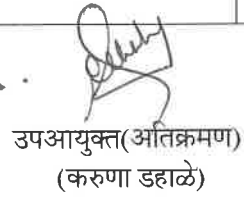 उपआयुक्त(अतिक्रमण)
(करुणा डहाळे)